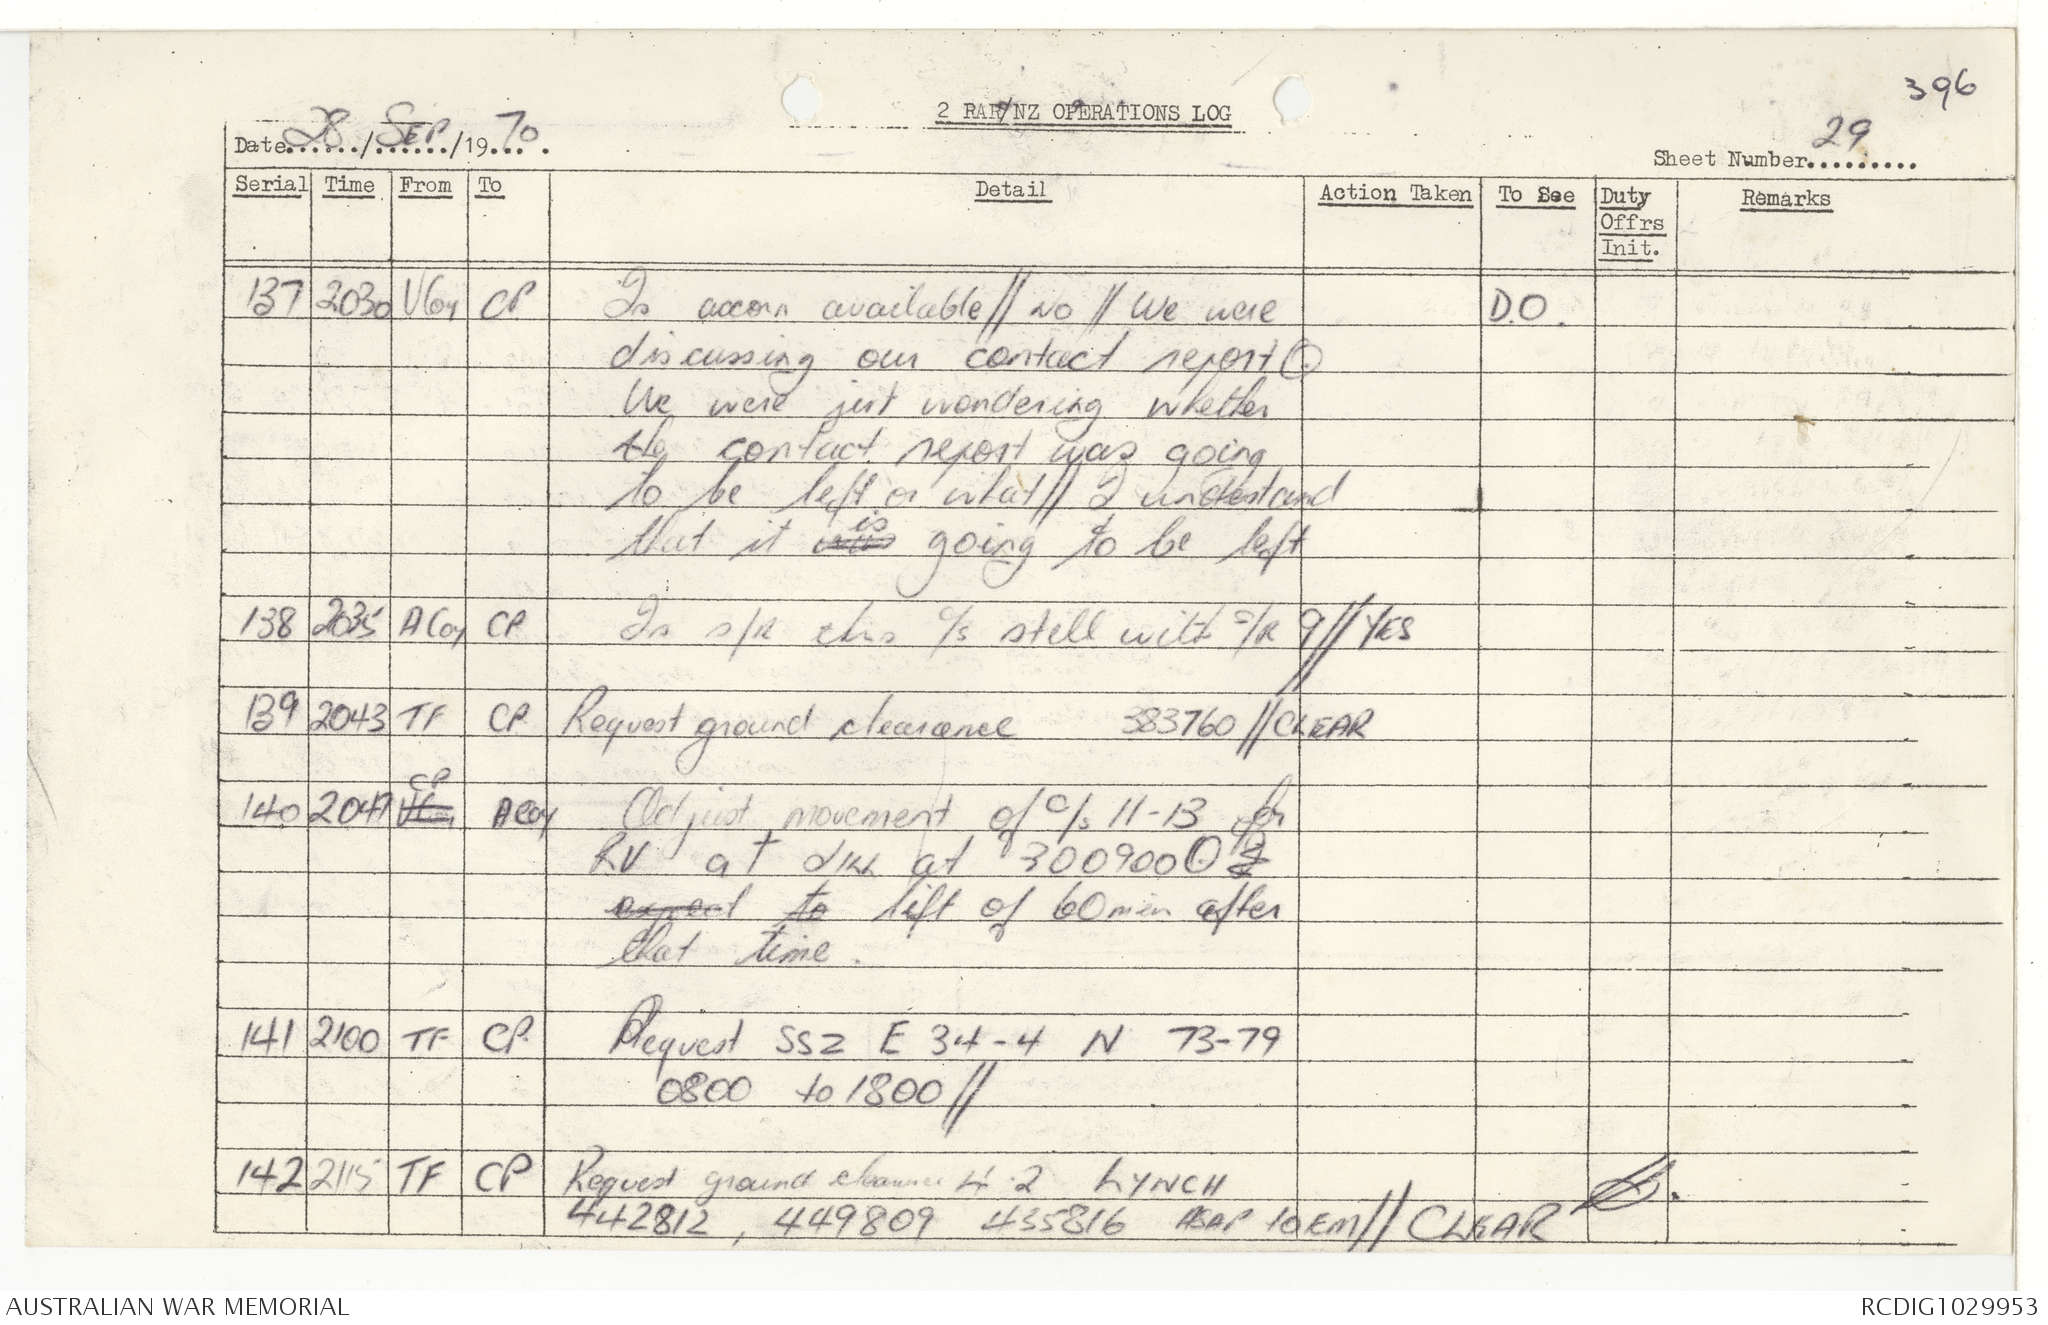 396
2 RAR/NZ OPERATIONS LOG
Date 28/SEP/1970
Sheet Number 29
Serial Time From To Detail Action Taken To See Duty Offrs Init. Remarks
137 2030 VCoy CP Is acorn available // NO // We were D.O.
discussing our contact report.
We were just wondering whether
the contact report was going
to be left or what // I understand
that it was is going to be left
138 2035 A Coy CP Is s/R this c/s still with c/R 9 // YES
139 2043 TF CP Request ground clearance 383760 // CLEAR
140 2047 VCoy CP A Coy Adjust movement of c/s 11-13 for
RV at at 300900.
expect to lift of 60 min after
that time.
141 2100 TF CP Request SSZ E 34-4 N 73-79
0800 to 1800 //
142 2115 TF CP Request ground clearance 2 LYNCH
442812, 449809 435816 ASAP to EM // CLEAR
AUSTRALIAN WAR MEMORIAL
RCDIG1029953